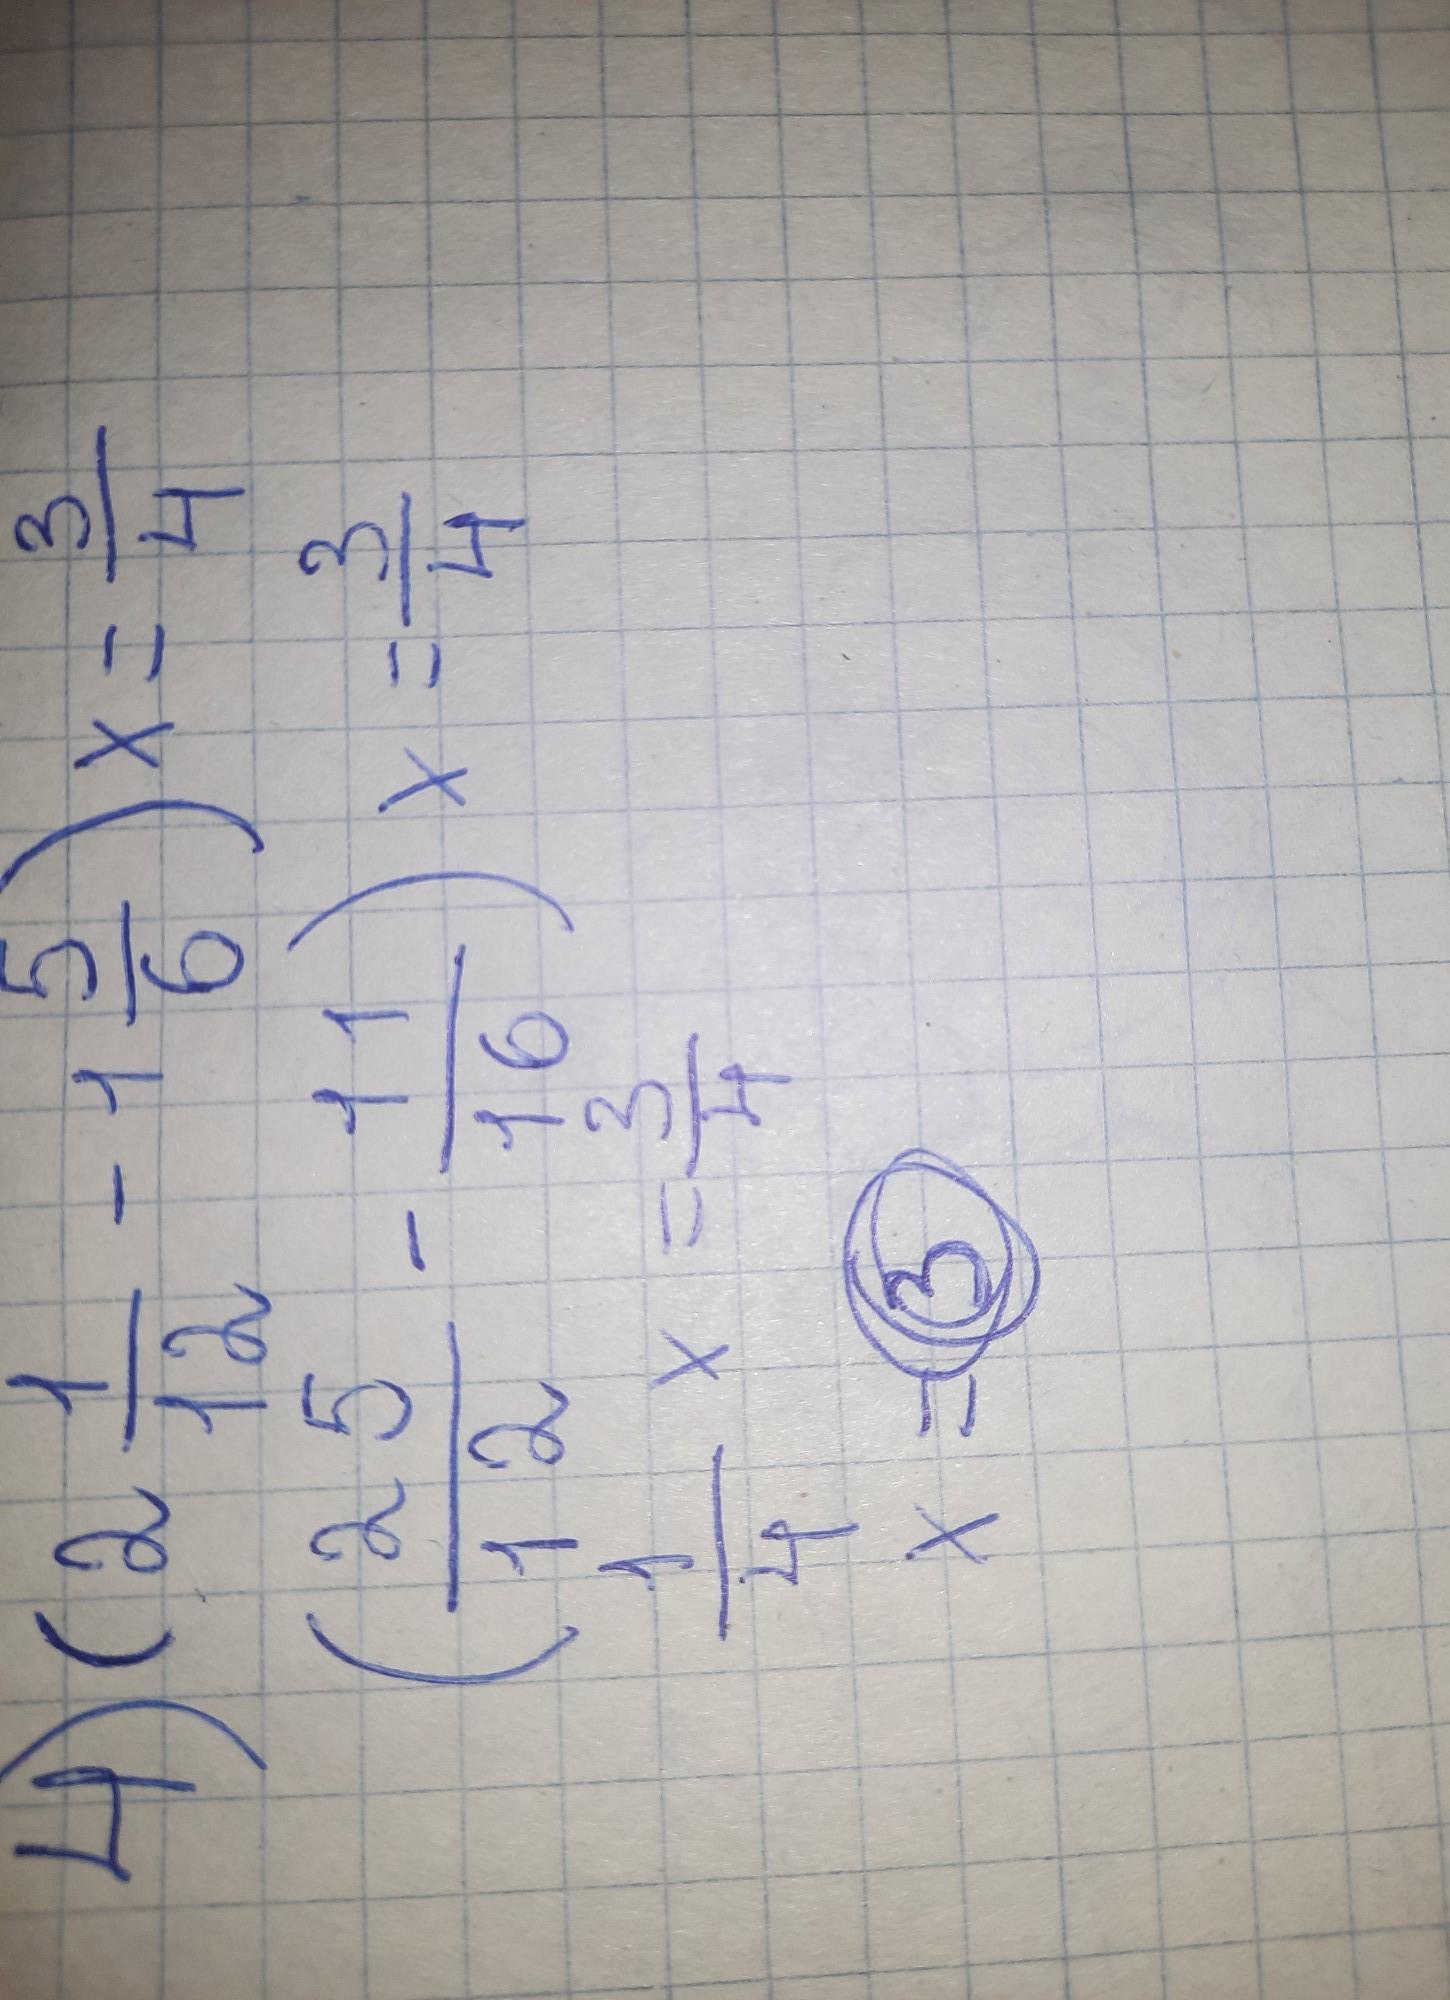 4) (2 1/12 - 1 5/6) x = 3/4
(25/12 - 11/16) x = 3/4
1/4 x = 3/4
x = 3